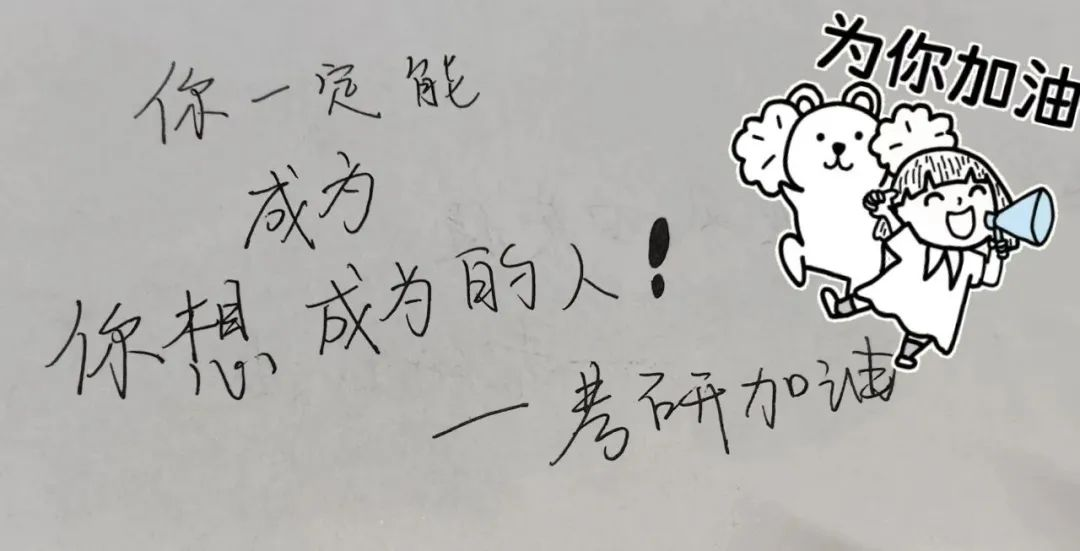 为你加油
你一定能
成为
你想成为的人!
一考研加油